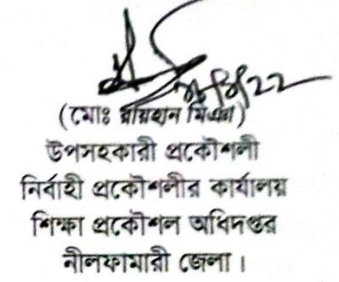 (মোঃ রায়হান মিঞা)
উপসহকারী প্রকৌশলী
নির্বাহী প্রকৌশলীর কার্যালয়
শিক্ষা প্রকৌশল অধিদপ্তর
নীলফামারী জেলা।